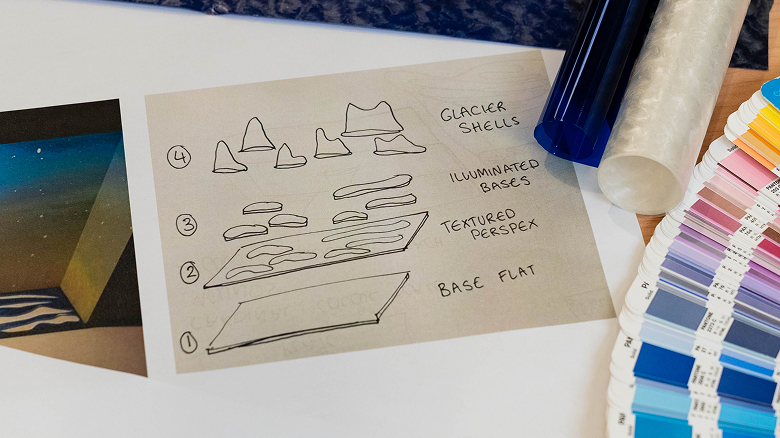 ④
GLACIER
SHELLS
ILLUMINATED
BASES
③
TEXTURED
PERSPEX
②
BASE FLAT
①
PANTONE
PANTONE